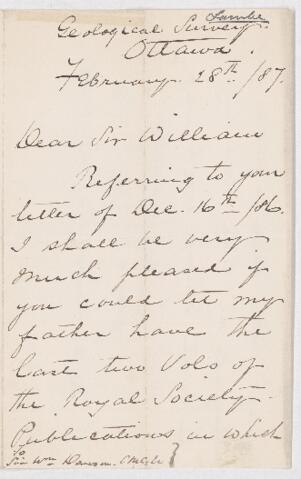 Lambe
Geological Survey.
Ottawa.
February 28th /87.
Dear Sir William
Referring to your
letter of Dec. 16th /86.
I shall be very
much pleased if
you could let my
father have the
last two Vols of
the Royal Society
Publications in which
To
Sir Wm Dawson. CMG &c